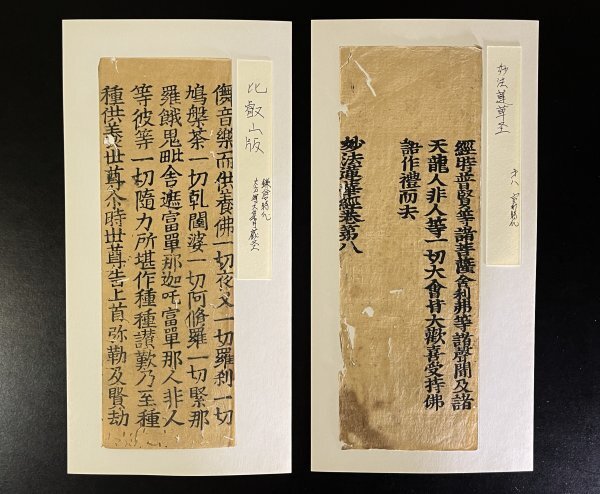 比叡山版
鎌倉時代
儛音樂而供養佛一切夜叉一切羅刹一切
鳩槃荼一切乹闥婆一切阿脩羅一切緊那
羅餓鬼毗舍遮富單那迦吒富單那人非人
等彼等一切隨力所堪作種種讃歎乃至種
種供養世尊尒時世尊告上首弥勒及賢劫
妙法蓮華圣
經時普賢等諸菩薩舍利弗等諸聲聞及諸
天龍人非人等一切大會皆大歡喜受持佛
語作禮而去
妙法蓮華經卷第八